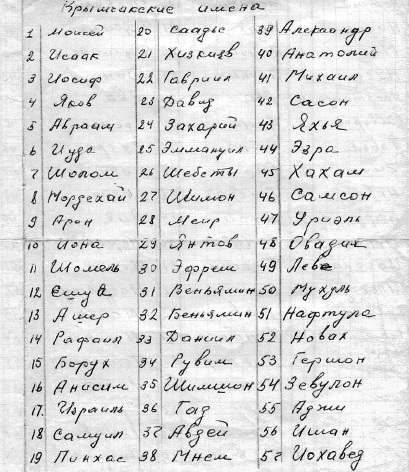 Крымчакские имена
1 Моисей 20 Саадье 39 Александр
2 Исаак 21 Хизкияв 40 Анатолий
3 Иосиф 22 Гавриил 41 Михаил
4 Яков 23 Давид 42 Сасон
5 Авраам 24 Захарий 43 Яхья
6 Иуда 25 Эммануил 44 Эзра
7 Шолом 26 Шебеты 45 Хахам
8 Мордехай 27 Шимон 46 Самсон
9 Арон 28 Меир 47 Уриэль
10 Иона 29 Янтов 48 Овадия
11 Шомель 30 Эфрем 49 Леве
12 Ешуа 31 Веньямин 50 Мухуль
13 Ашер 32 Беньямин 51 Нафтула
14 Рафаил 33 Даниил 52 Новах
15 Борух 34 Рувим 53 Гершон
16 Анисим 35 Шимшон 54 Зевулон
17. Израиль 36 Гад 55 Аджи
18 Самуил 37 Авдей 56 Ишан
19 Пинхас 38 Мнем 57 Йохавед